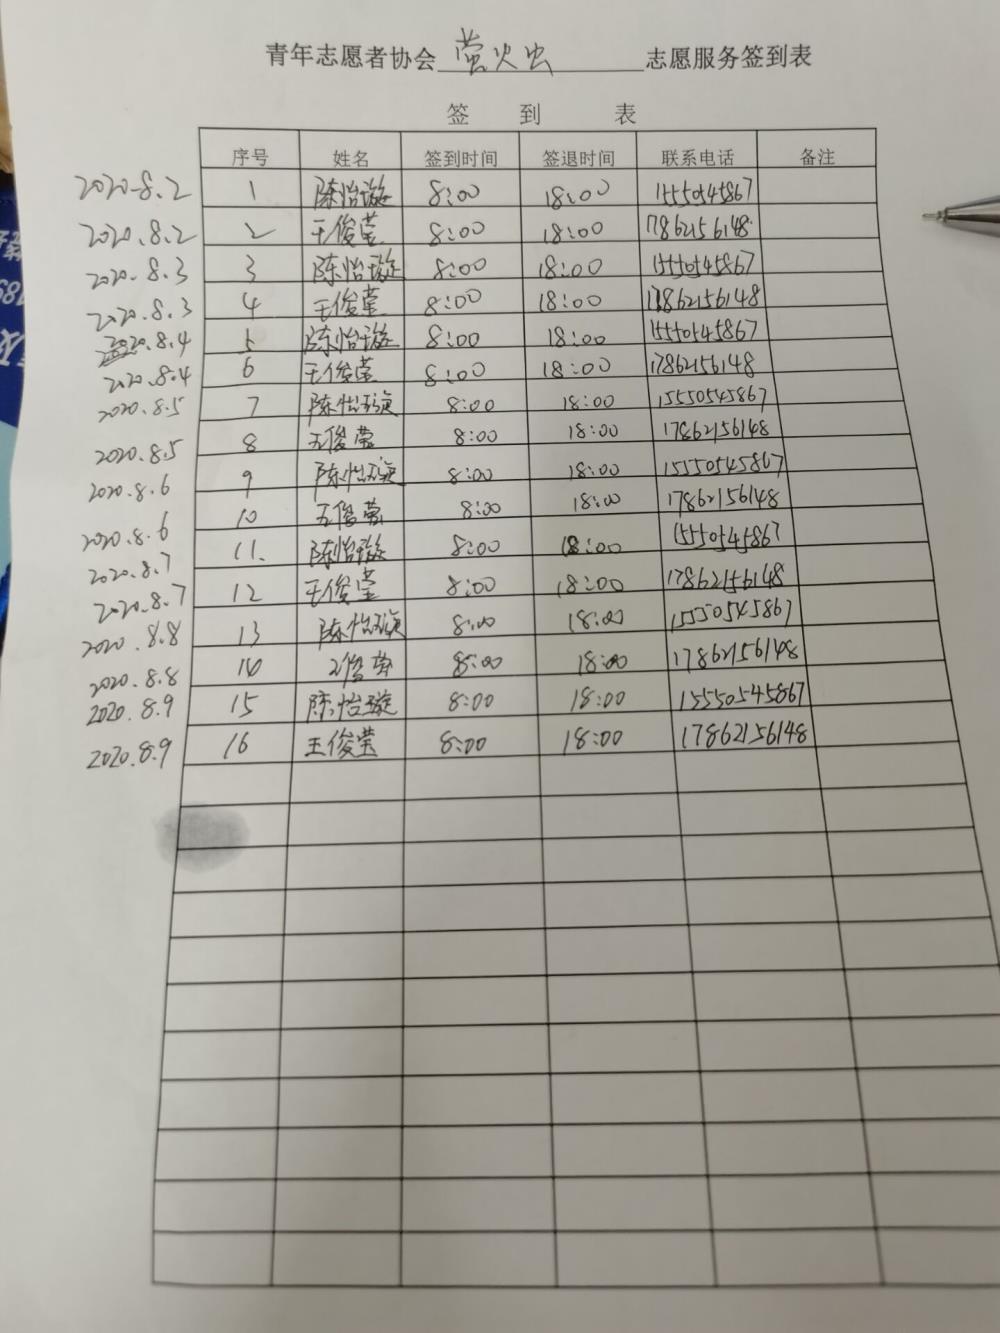 青年志愿者协会 萤火虫 志愿服务签到表
签 到 表
序号 姓名 签到时间 签退时间 联系电话 备注
2020.8.2 1 陈怡璇 8:00 18:00 15550545867
2020.8.2 2 王俊莹 8:00 18:00 17862156148
2020.8.3 3 陈怡璇 8:00 18:00 15550545867
2020.8.3 4 王俊莹 8:00 18:00 17862156148
2020.8.4 5 陈怡璇 8:00 18:00 15550545867
2020.8.4 6 王俊莹 8:00 18:00 17862156148
2020.8.5 7 陈怡璇 8:00 18:00 15550545867
2020.8.5 8 王俊莹 8:00 18:00 17862156148
2020.8.6 9 陈怡璇 8:00 18:00 15550545867
2020.8.6 10 王俊莹 8:00 18:00 17862156148
2020.8.7 11. 陈怡璇 8:00 18:00 15550545867
2020.8.7 12 王俊莹 8:00 18:00 17862156148
2020.8.8 13 陈怡璇 8:00 18:00 15550545867
2020.8.8 14 王俊莹 8:00 18:00 17862156148
2020.8.9 15 陈怡璇 8:00 18:00 15550545867
2020.8.9 16 王俊莹 8:00 18:00 17862156148